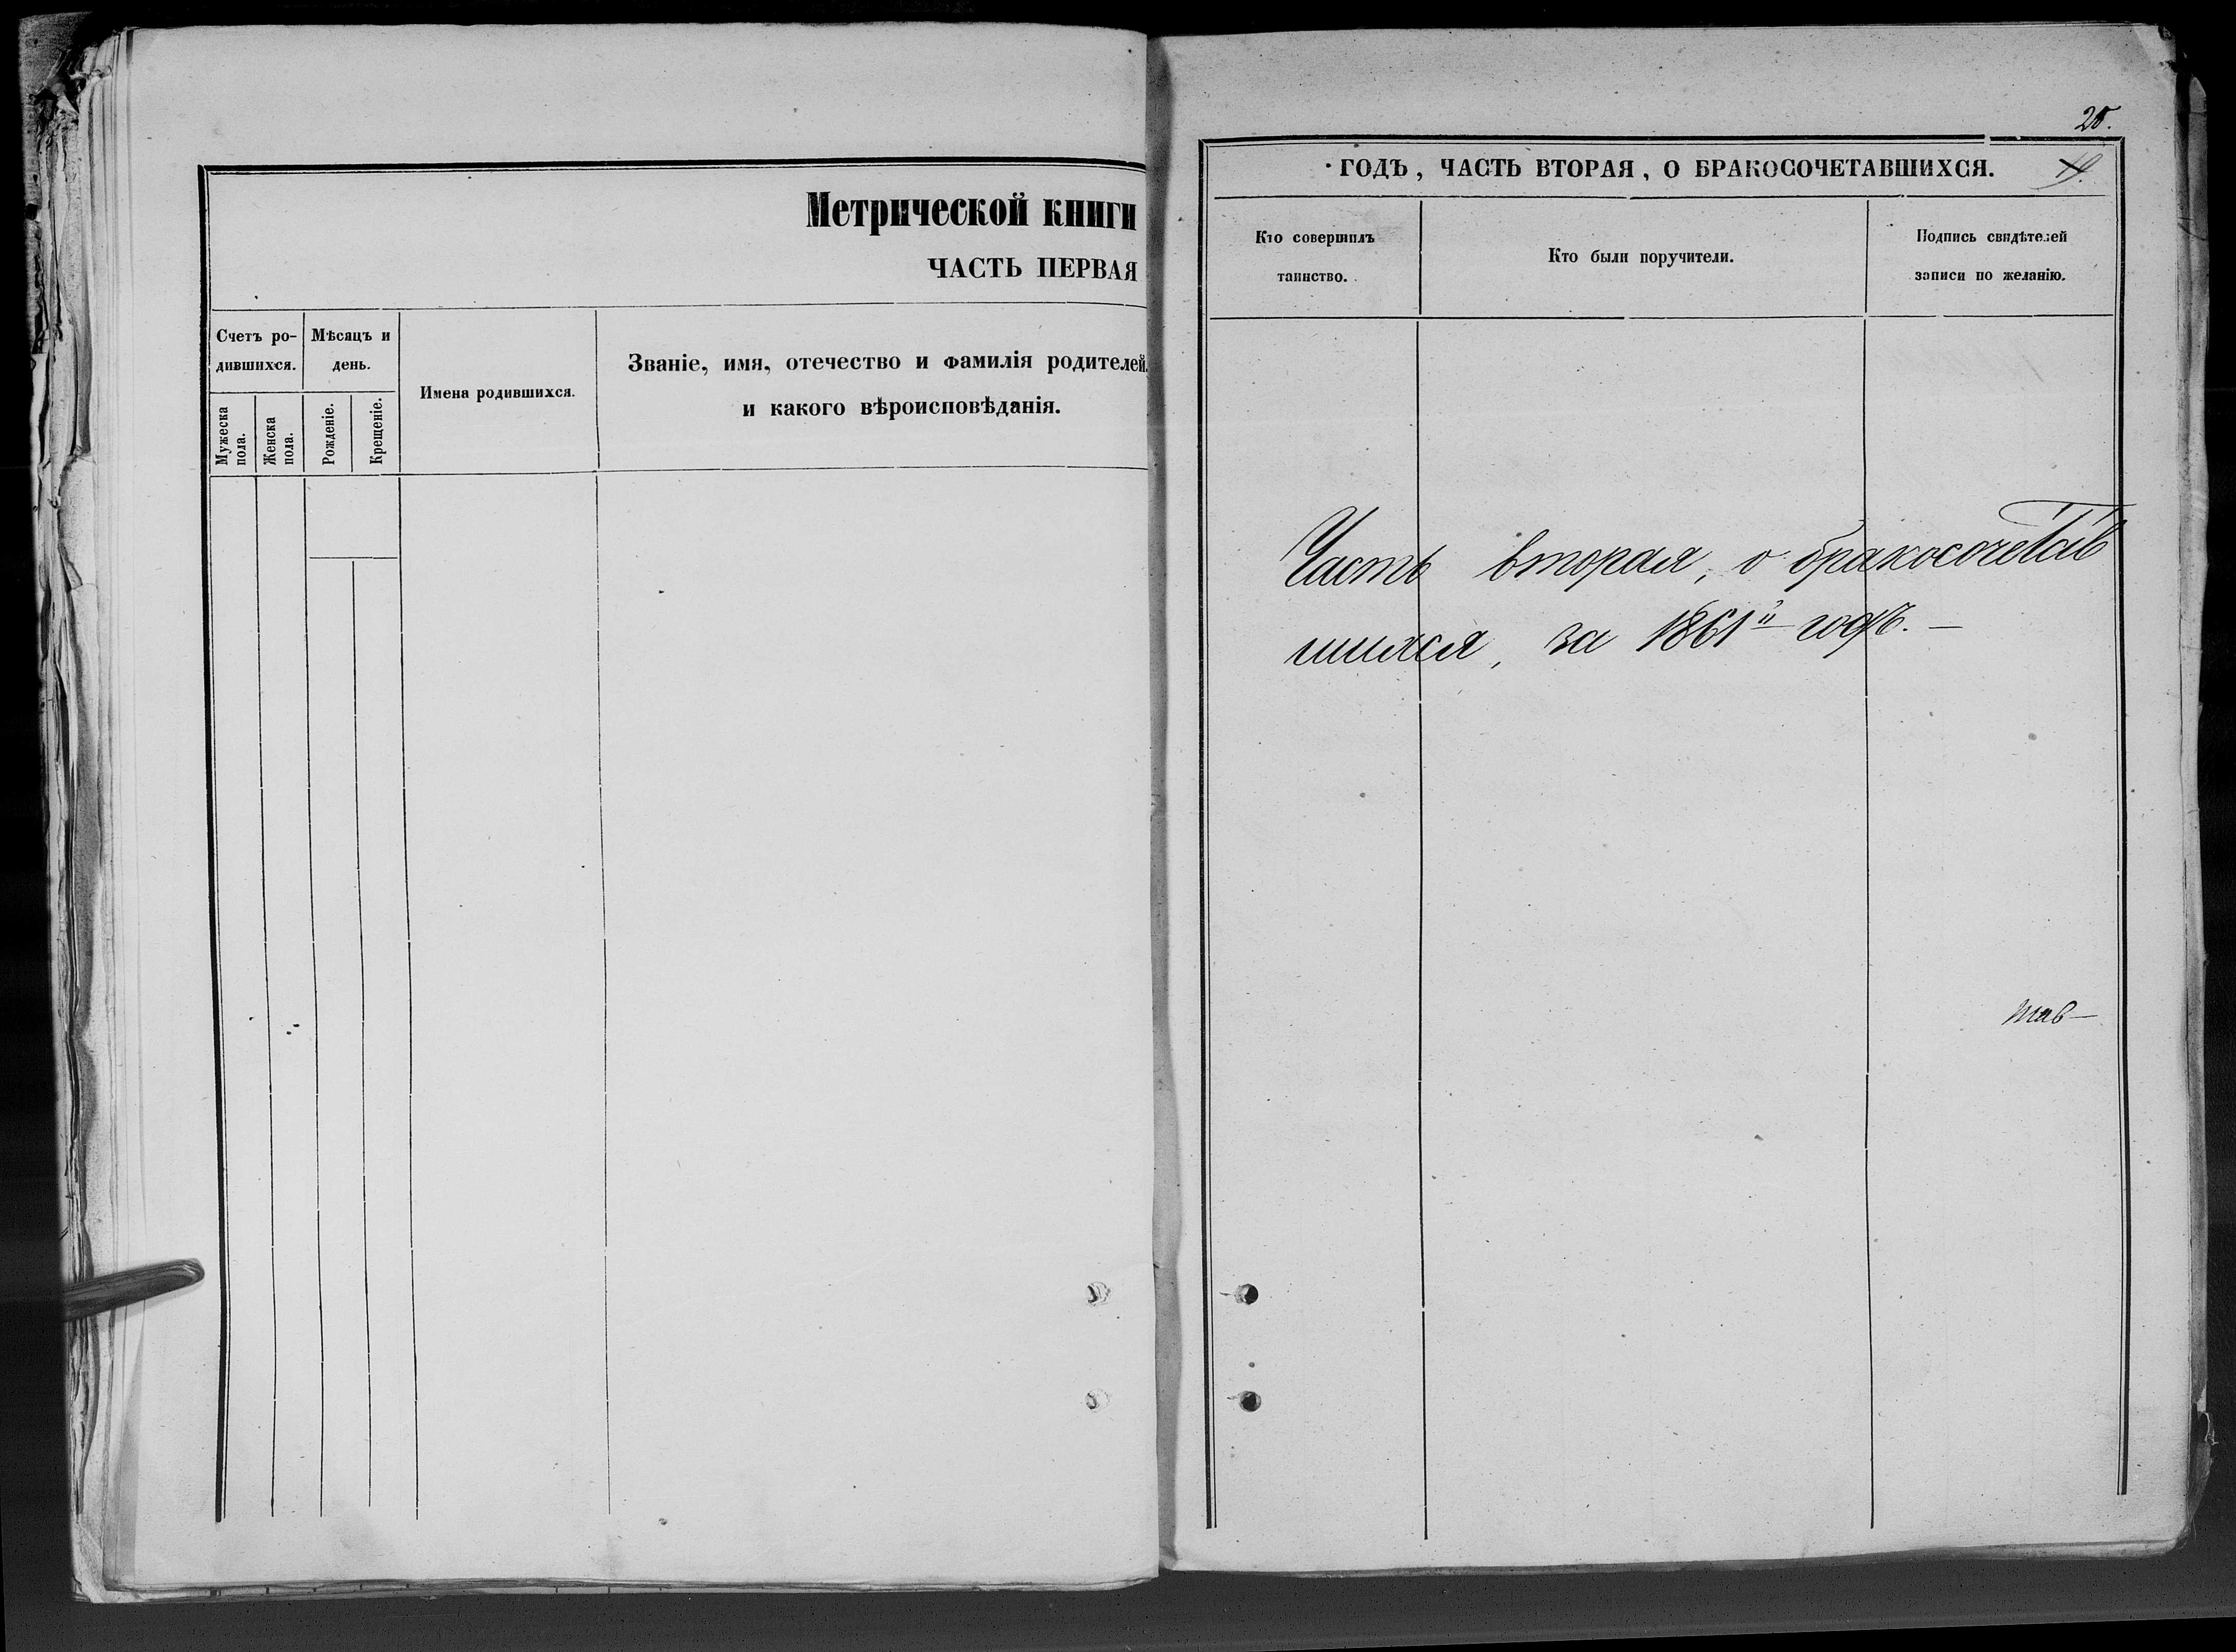 Метрической книги
ЧАСТЬ ПЕРВАЯ
Счетъ ро-
дившихся.
Мѣсяцъ и
день.
Мужеска
пола.
Женска
пола.
Рожденіе.
Крещеніе.
Имена родившихся.
Званіе, имя, отечество и фамилія родителей,
и какого вѣроисповѣданія.
ГОДЪ, ЧАСТЬ ВТОРАЯ, О БРАКОСОЧЕТАВШИХСЯ.
Кто совершилъ
таинство.
Кто были поручители.
Подпись свидѣтелей
записи по желанію.
Часть вторая, о бракосочетав
шихся, за 1861й годъ. —
тав—